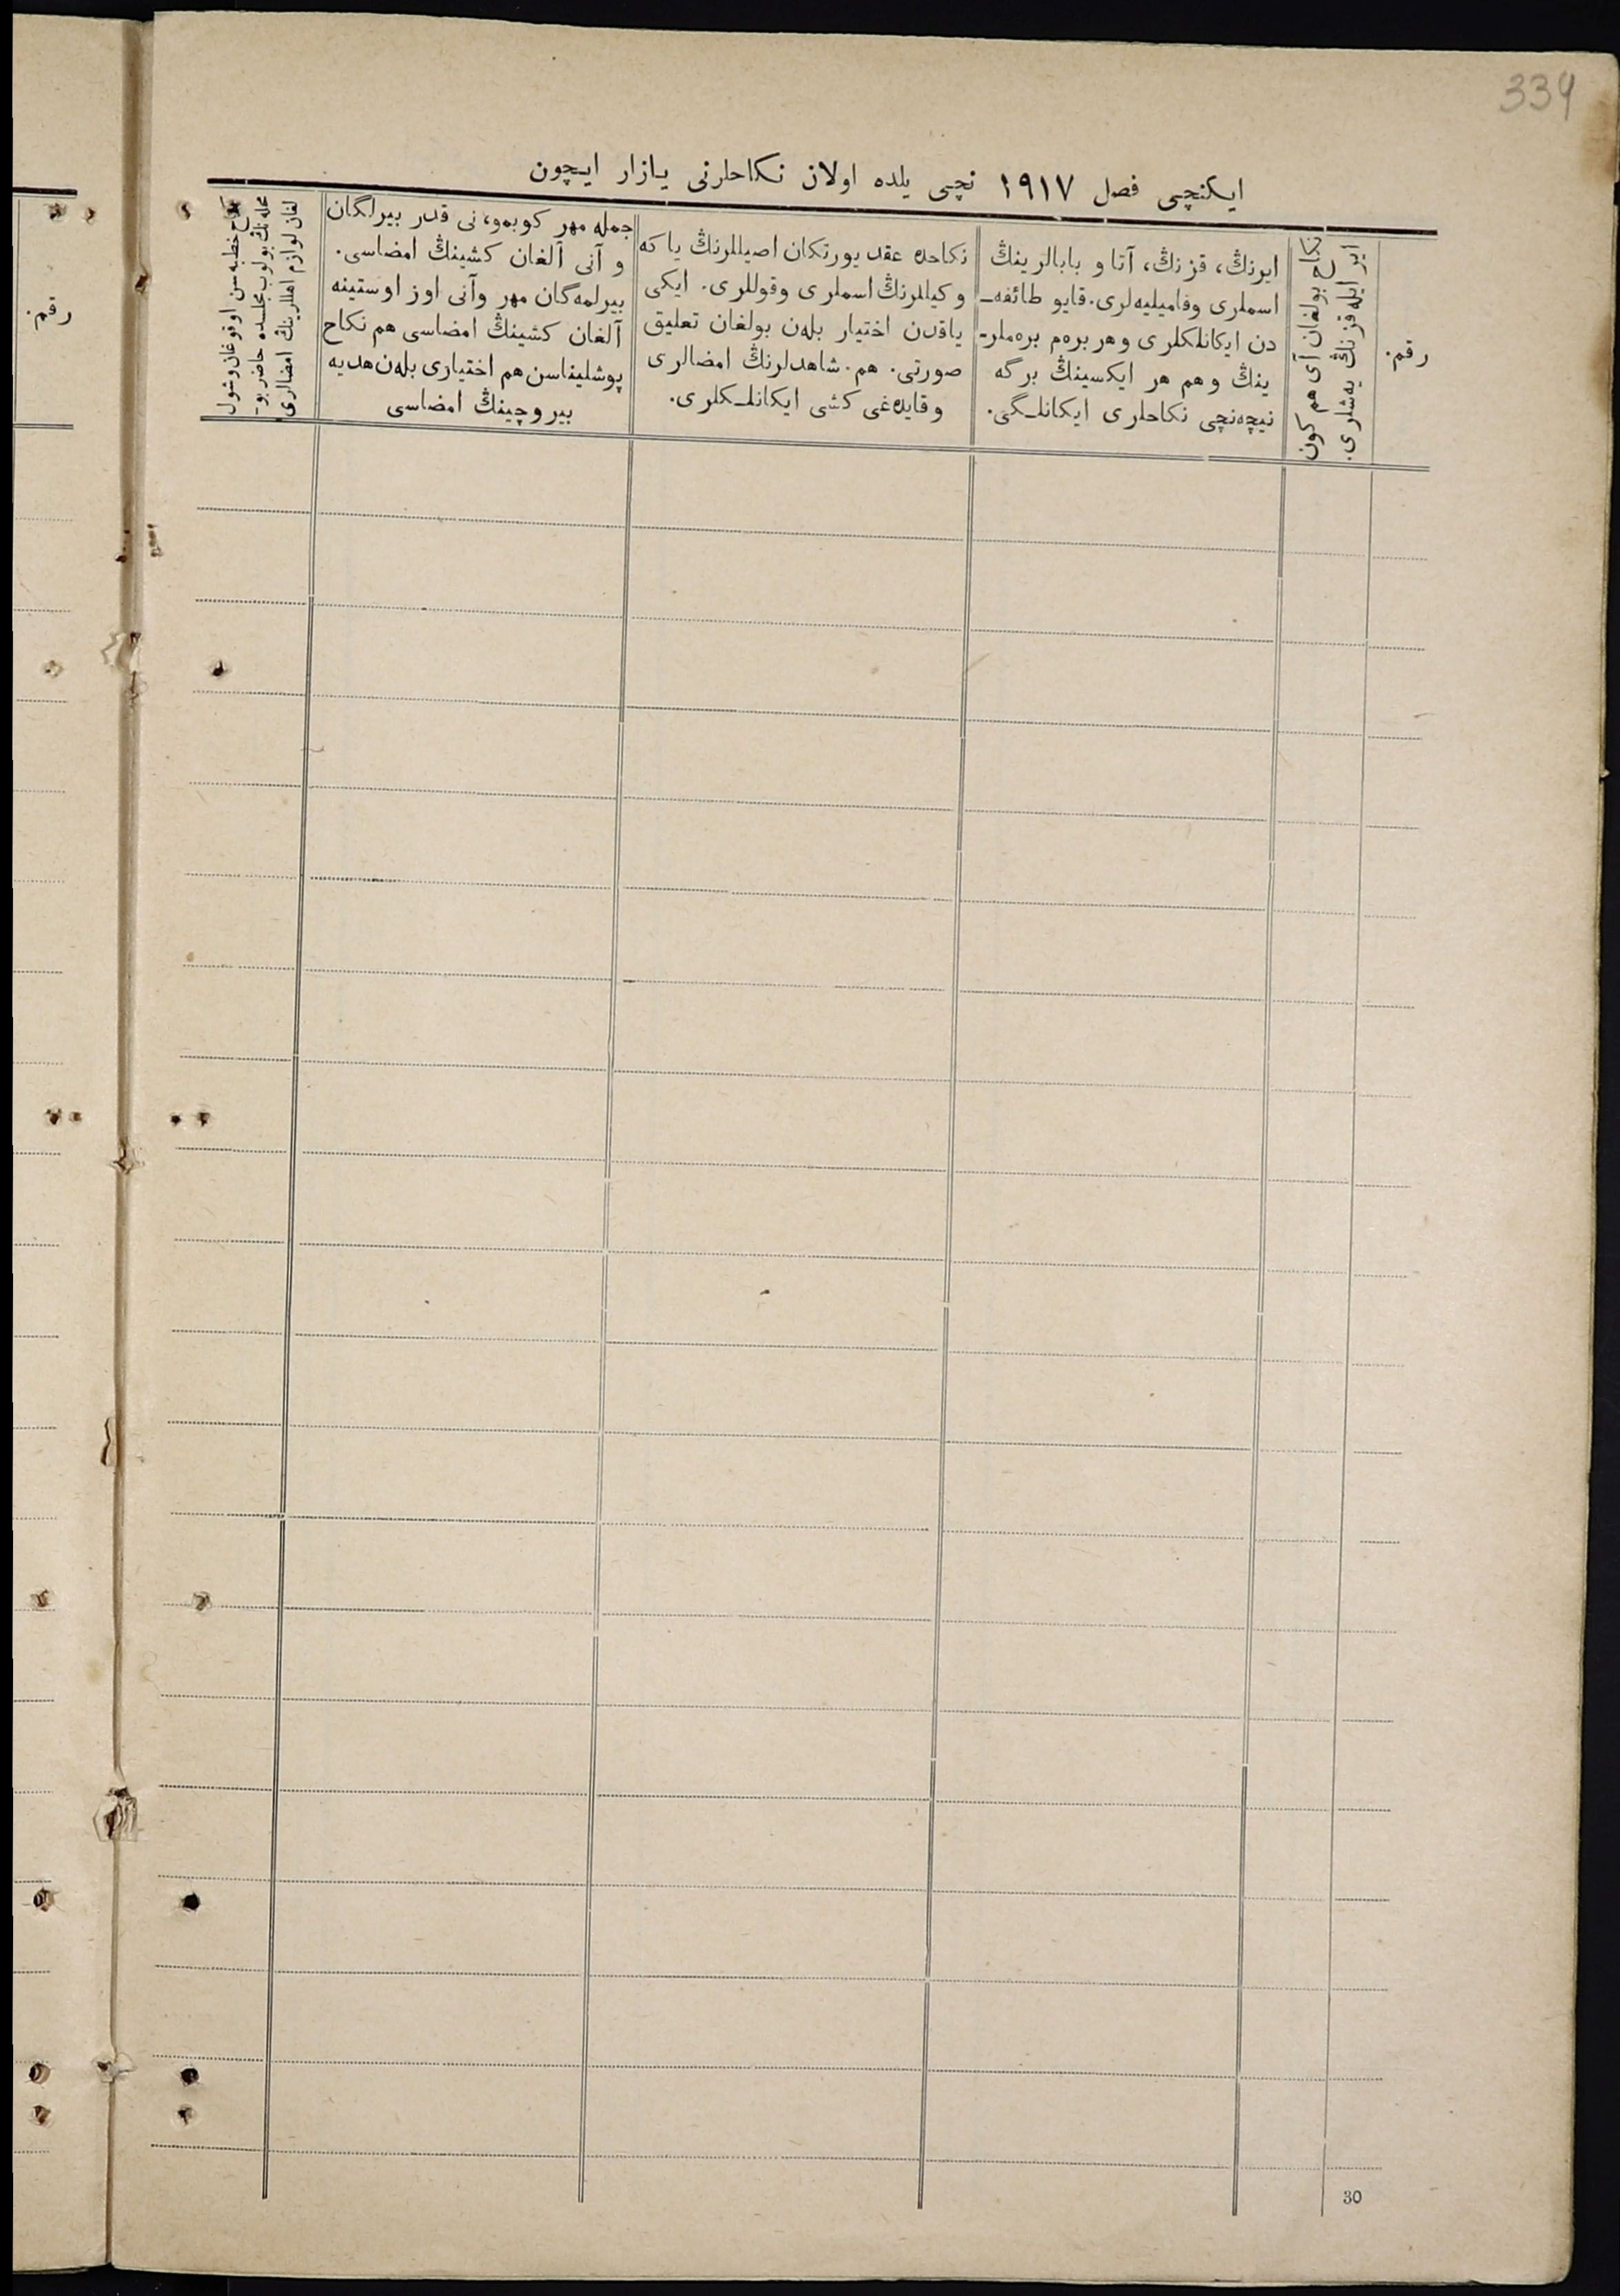 339
ایکنچی فصل ١٩١٧ نچی یلده اولان نکاحلرنی یازار ایچون
رقم.
ایر ایله قزنڭ یەشلری.
نکاح بولغان آی هم کون
ایرنڭ، قزنڭ، آتا و بابالرینڭ
اسملری وفامیلیەلری. قایو طائفه‌ـ
دن ایکانلکلری وهر برەم برەملرـ
ینڭ وهم هر ایکسینڭ برگه
نیچەنچی نکاحلری ایکانلـگی.
نکاحده عقد یورتکان اصیللرنڭ یا که
وکیللرنڭ اسملری وقوللری. ایکی
یاقدن اختیار بلەن بولغان تعلیق
صورتی. هم. شاهدلرنڭ امضالری
وقایدەغی کشی ایکانلـکلری.
جمله مهر کوبمو، نی قدر بیرلگان
و آنی آلغان کشینڭ امضاسی.
بیرلمەگان مهر وآنی اوز اوستینه
آلغان کشینڭ امضاسی هم نکاح
پوشلیناسن هم اختیاری بلەن هدیه
بیروچینڭ امضاسی
نکاح خطبه‌سن اوقوغان وشول
محلەنڭ بولوب مجلسده حاضر بوـ
لغان لوازم اهللرینڭ امضالری
رقم.
30